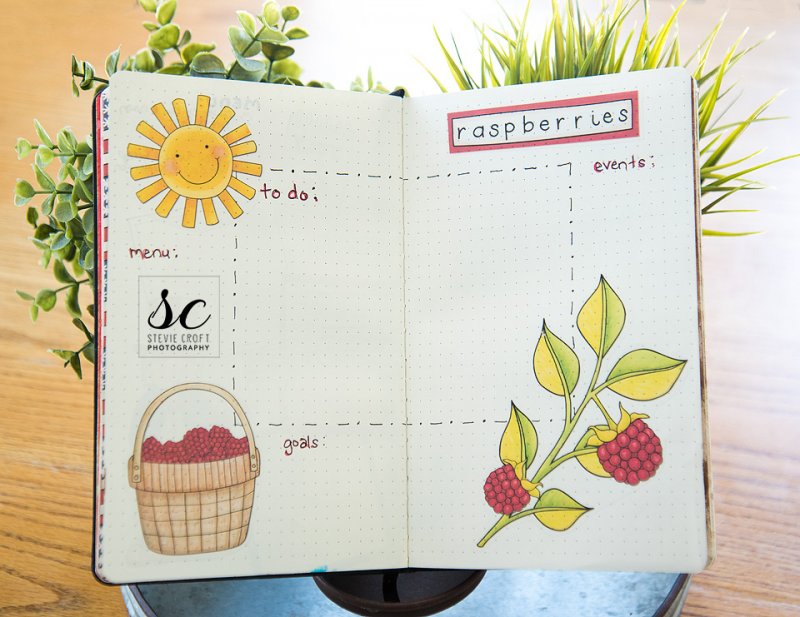 raspberries
events:
to do:
menu:
sc
STEVIE CROFT
PHOTOGRAPHY
goals: